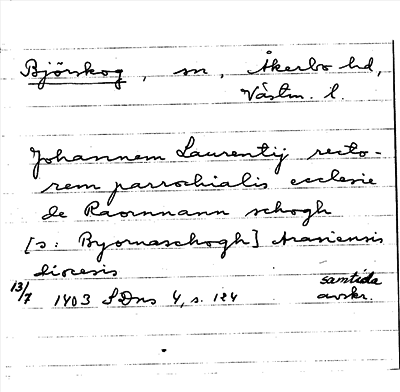 Björskog, sn, Åkerbo hd,
Västm. l.
Johannem Laurentij recto-
rem parrochialis ecclesie
de Raornnann schogh
[s: Byornaschogh] Arasiensis
diocesis
13/7 1403 SDns 4, s. 124 samtida avskr.